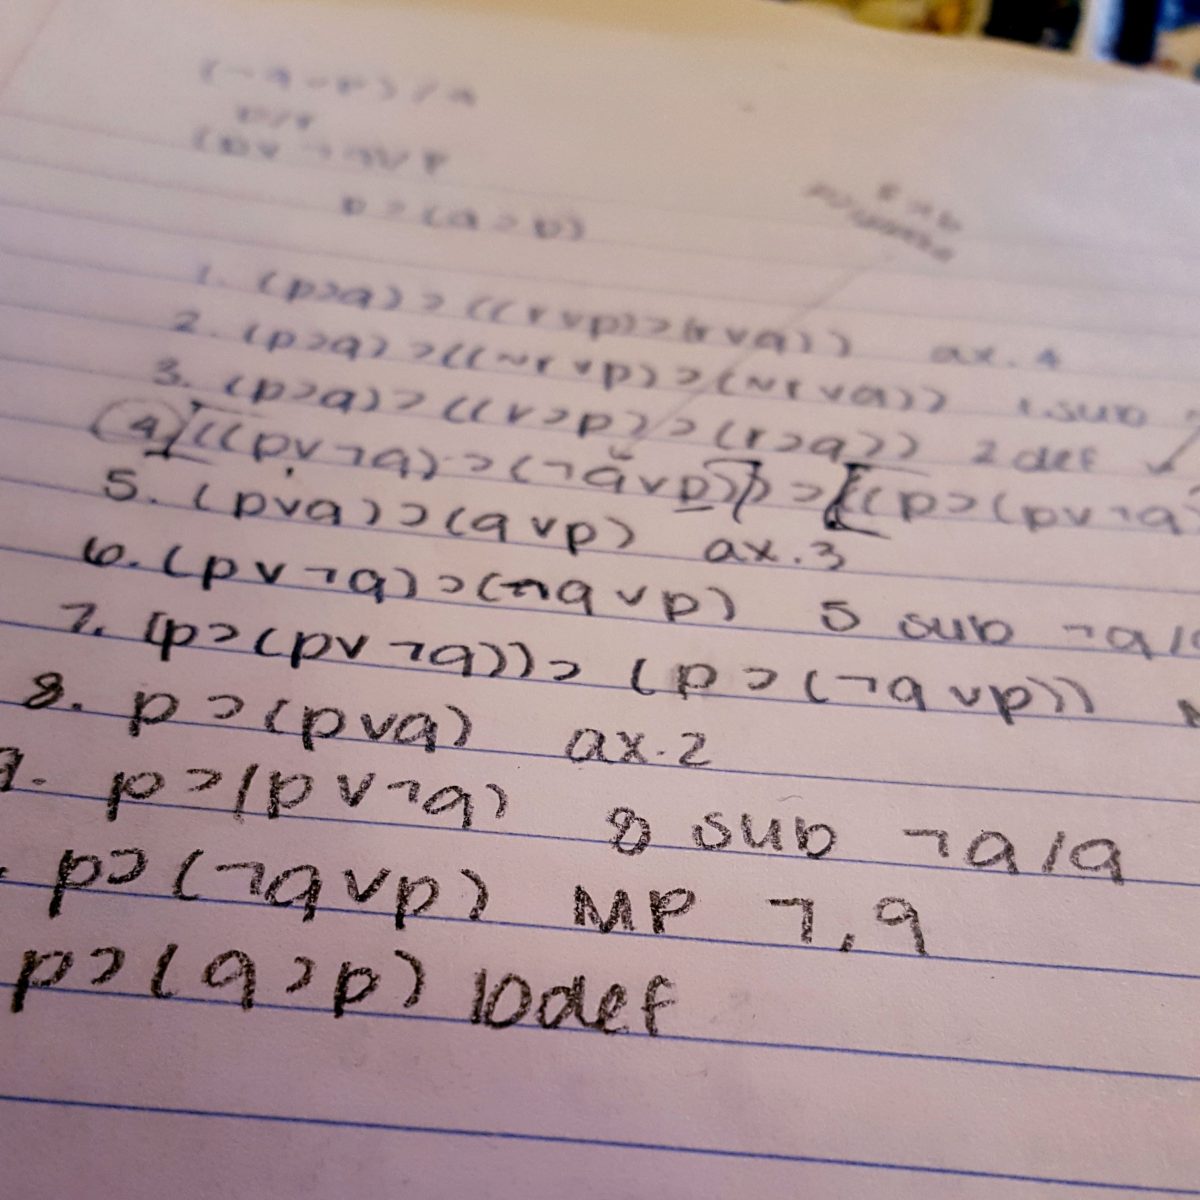 p ⊃ (q ⊃ p)
1. (p⊃q) ⊃ ((r∨p)⊃(r∨q)) ax. 4
2. (p⊃q) ⊃((~r∨p) ⊃ (~r∨q)) 1. sub
3. (p⊃q) ⊃ ((r⊃p) ⊃ (r⊃q)) 2 def ✓
4 [((p∨¬q) ⊃ (¬q∨p)) ⊃ [((p⊃(p∨¬q)
5. (p∨q) ⊃ (q∨p) ax.3
6. (p∨¬q) ⊃ (¬q∨p) 5 sub ¬q/
7. (p⊃(p∨¬q)) ⊃ (p⊃(¬q∨p))
8. p ⊃ (p∨q) ax.2
9. p ⊃ (p∨¬q) 8 sub ¬q/q
. p⊃ (¬q∨p) MP 7, 9
p⊃ (q⊃p) 10 def